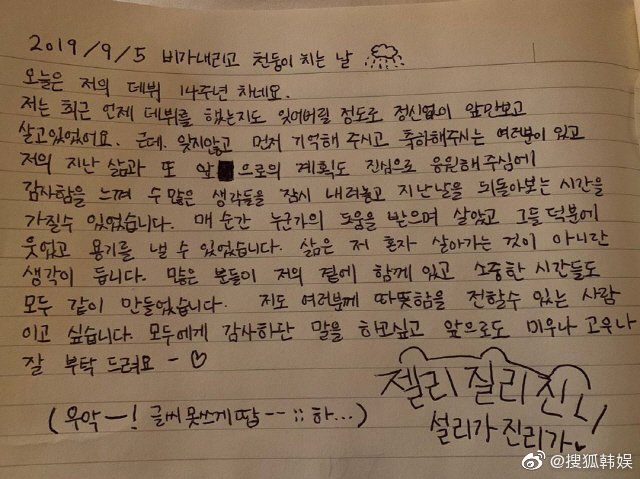 2019/9/5 비가내리고 천둥이 치는 날
오늘은 저의 데뷔 14주년 차네요.
저는 최근 언제 데뷔를 했는지도 잊어버릴 정도로 정신없이 앞만보고
살고있었어요. 근데, 잊지않고 먼저 기억해 주시고 축하해주시는 여러분이 있고
저의 지난 삶과 또 앞으로의 계획도 진심으로 응원해주심에
감사함을 느껴 수많은 생각들을 잠시 내려놓고 지난날을 뒤돌아보는 시간을
가질수 있었습니다. 매 순간 누군가의 도움을 받으며 살았고 그들 덕분에
웃었고 용기를 낼 수 있었습니다. 삶은 저 혼자 살아가는 것이 아니란
생각이 듭니다. 많은 분들이 저의 곁에 함께 있고 소중한 시간들도
모두 같이 만들었습니다. 저도 여러분께 따뜻함을 전할수 있는 사람
이고 싶습니다. 모두에게 감사하단 말을 하고싶고 앞으로도 미우나 고우나
잘 부탁 드려요 - ♡
(우악ㅡ! 글씨 못쓰게땁 -- ;; 하...)
젤리 질리 진리
설리가 진리가♥
@搜狐韩娱